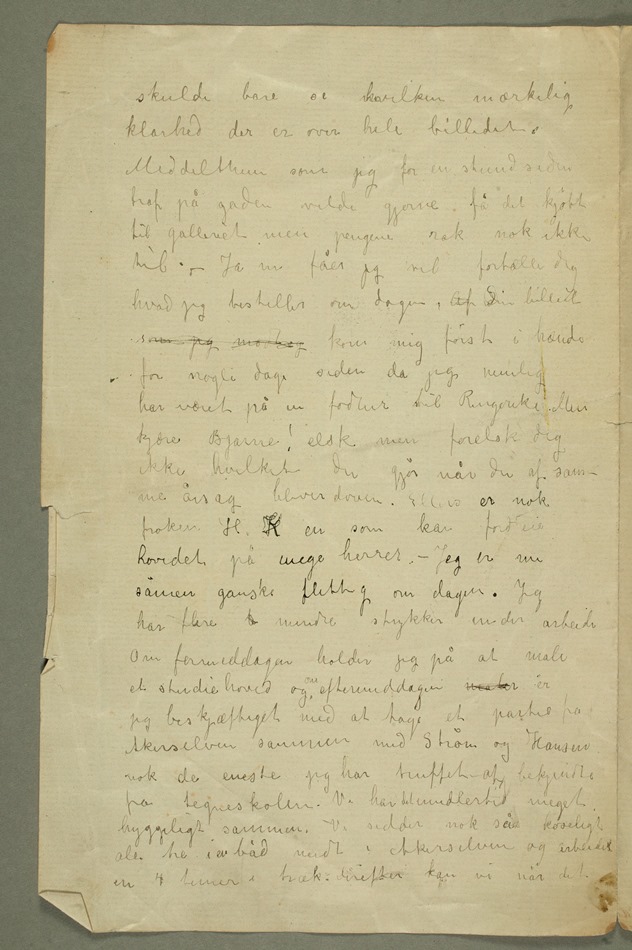 skulde bare se hvilken mærkelig
klarhed der er over hele billedet.
Middelthun som jeg for en stund siden
traf på gaden vilde gjerne få det kjøbt
til galleriet men pengene rak nok ikke
til. – Ja nu får jeg vel fortælle dig
hvad jeg bestiller om dagen, af Din billedt
som jeg kom mig først i hænde
for nogle dage siden da jeg nemlig
har været på en fodtur til Ringerike. Men
kjære Bjarne! elsk men forelsk dig
ikke hvilket du gjør når du af sam-
me årsag bliver doven. Ellers er nok
frøken H. K en som kan fordreie
hovedet på unge herrer. – Jeg er nu
såmen ganske flittig om dagen. Jeg
har flere mindre stykker under arbeide
Om formiddagen holder jeg på at male
et studiehoved og om eftermiddagen er
jeg beskjæftiget med at tage et parti fra
Akerselven sammen med Strøm og Hansen
nok de eneste jeg har truffet af bekjendte
fra tegneskolen. Vi har det imidlertid meget
hyggeligt sammen. Vi sidder nok så koseligt
alle tre i en båd midt i Akerselven og arbeidet
en 4 timer i træk. derefter kan vi når det